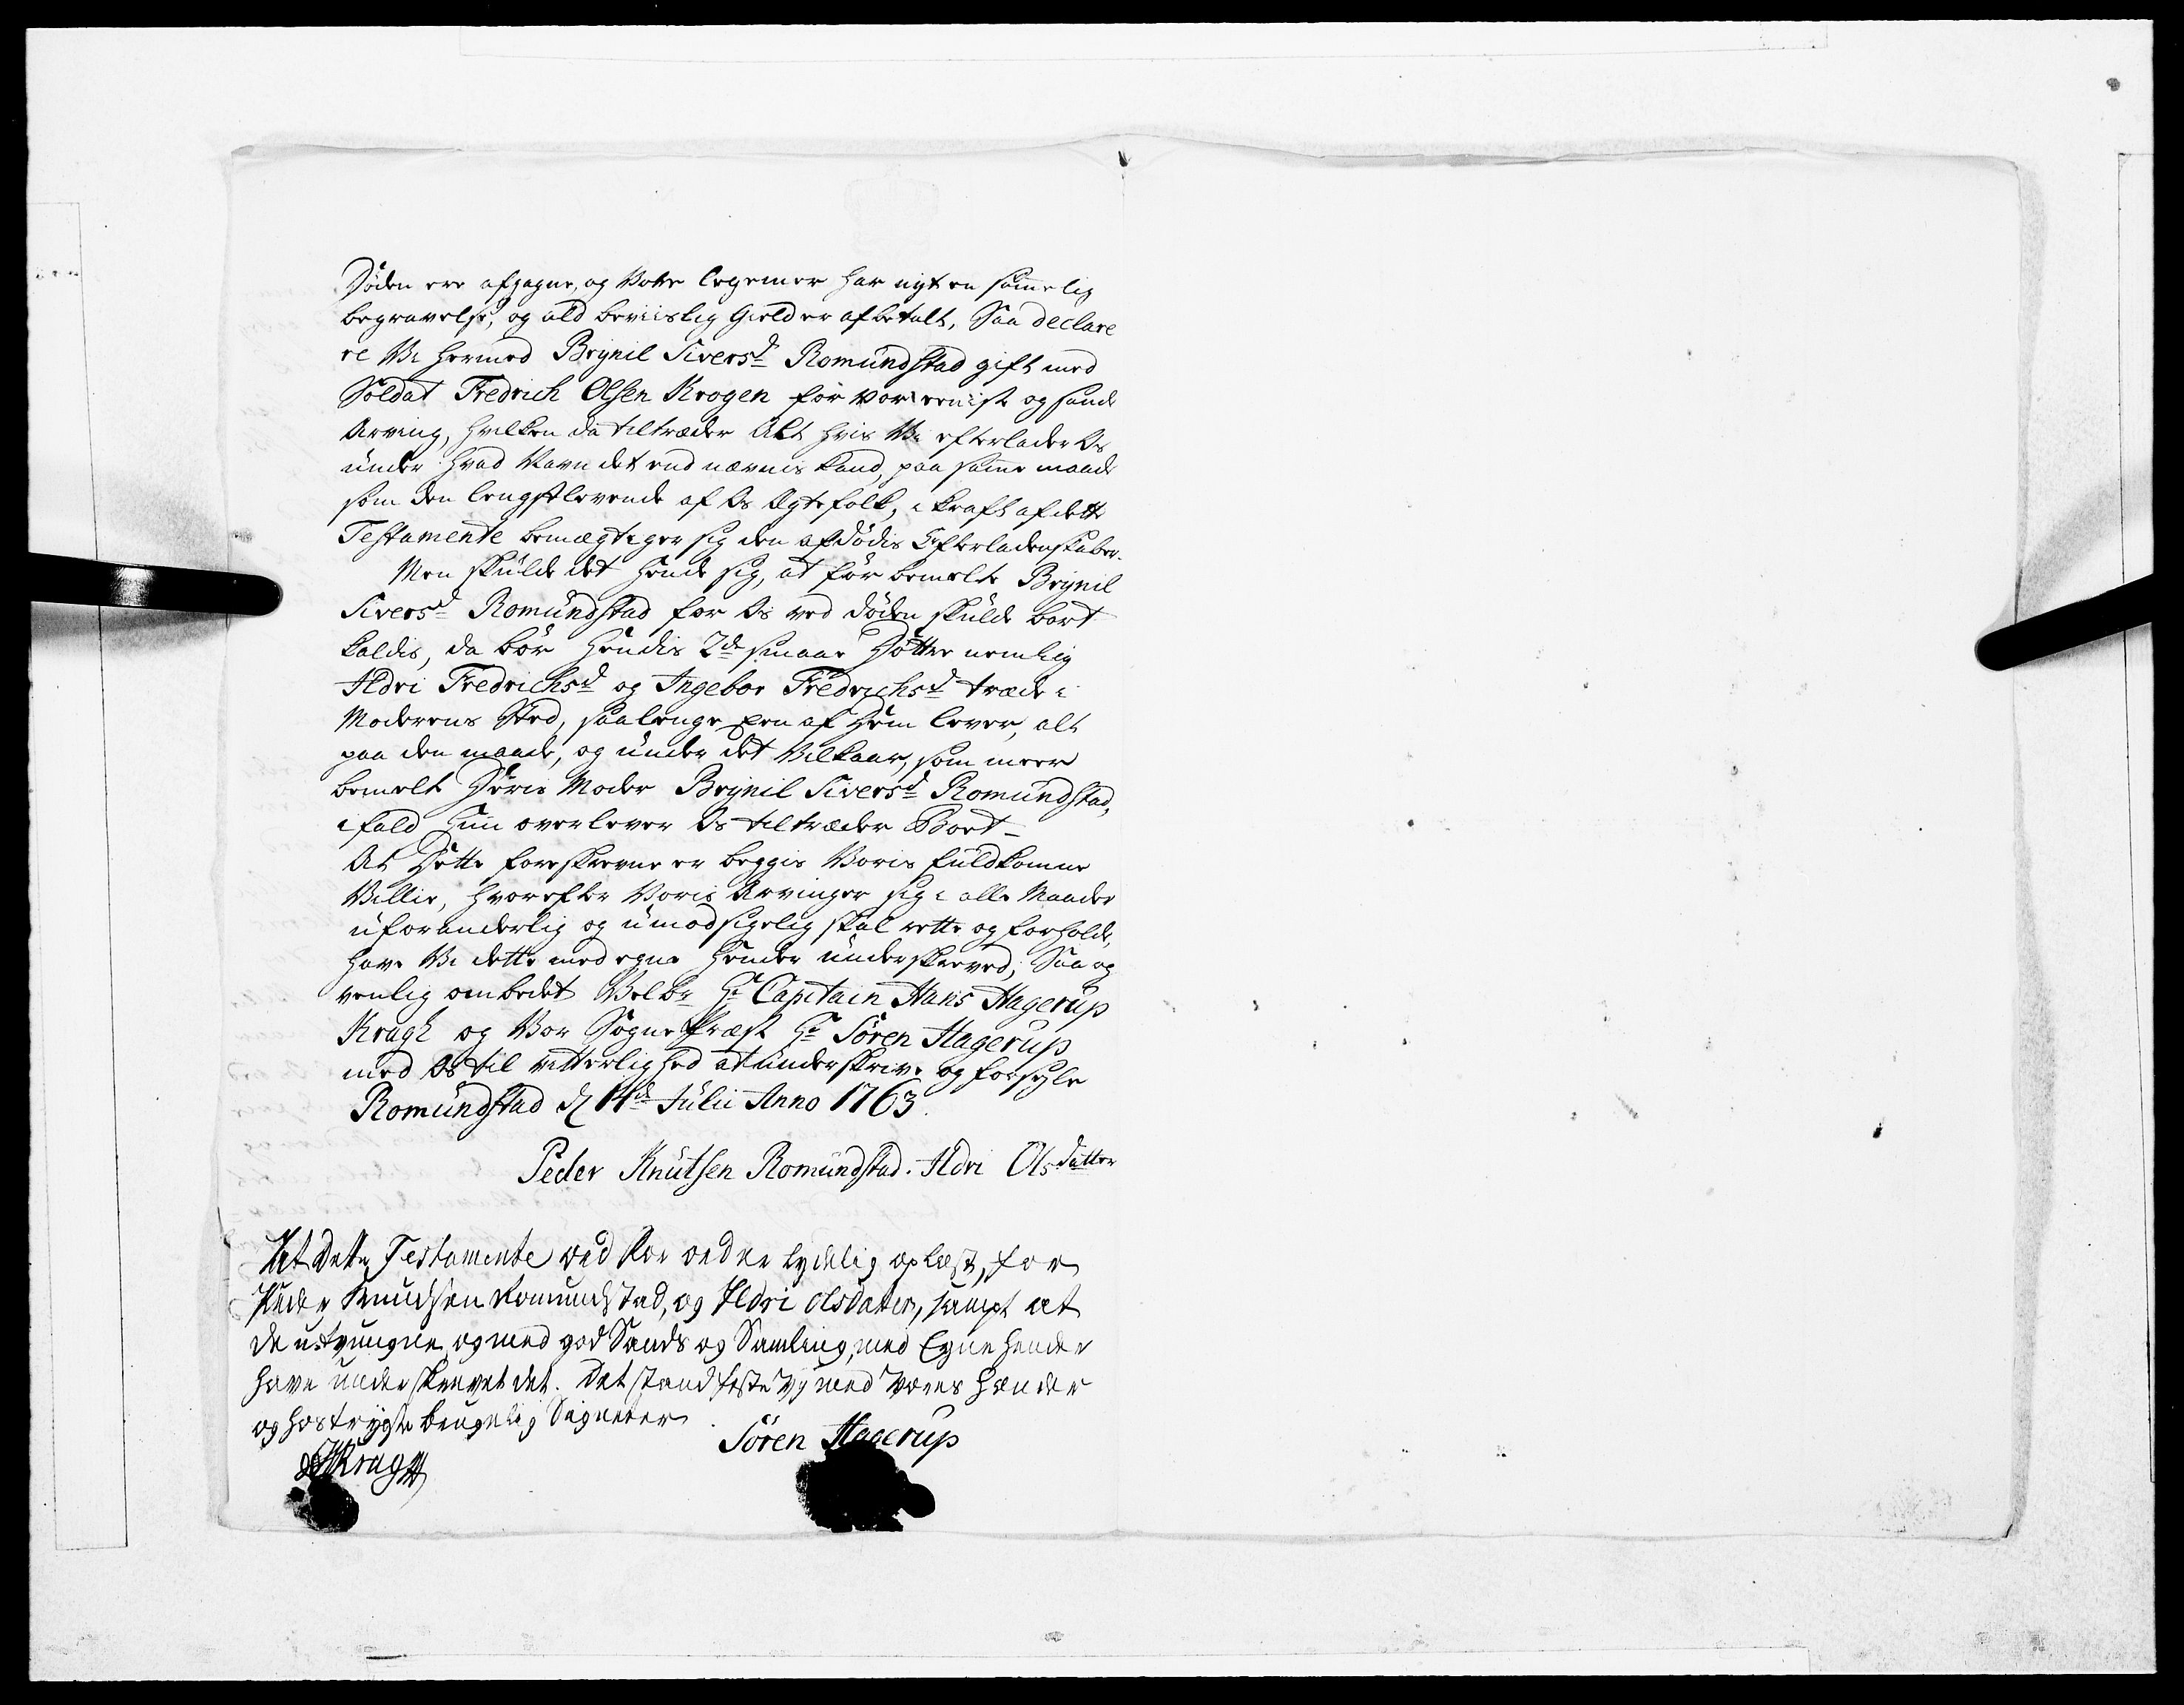 Döden ere afgagne, og Vore legemer har nyt en sømelig
begravelse, og ald beviislig Gield er afbetalt, Saa declare
re Vi hermed Brynil Siversd Romundstad gift med
Soldat Fredrich Olsen Krogen for vor eeniste og sande
Arving, hvilken da tiltræder Alt hvis Vi efterlader Os
under hvad Navn det end nævnis kand, paa samme maade
som den lengstlevende af Os Ægtefolk, i kraft af dette
Testamente bemægtiger sig den afdödis Efterladenskaber.
Men skulde det hende sig, at för bemelte Brynil
Siversd Romundstad for Os ved döden skulde bort
kaldis, da bör Hendis 2de smaae Döttre nemlig
Ildri Fredrichsd og Ingebor Fredrichsd træde i
Moderens Sted, saalenge een af Dem lever, alt
paa den maade, og under det Vilkaar, som meer
bemelt Deris Moder Brynil Siversd Romundstad,
ifald Hun overlever Os tiltræder Boet
At Dette foreskrevne er beggis Voris fuldkomne
Villie, hvorefter Voris Arvinger sig i alle Maader
uforanderlig og umodsigelig skal rette og forholde,
have Vi dette med egne Hender underskreved; Saa og
venlig ombedet Velbr Hr Capitain Hans Hagerup
Kragh og Vor Sogne Præst Hr Sören Hagerup
med Os til vitterlighed at underskrive og forsegle
Romundstad d 14de Julii Anno 1763.
Peder Knutsen Romundstad. Ildri Olsdatter
At Dette Testamente ord for ord er lydelig oplæst, for
Peder Knudsen Romundstad, og Ildri Olsdatter, sampt at
de utvungne og med god Sands og Samling, med Egne hender
have underskrevet det. Det standfeste Vy med Vores Hænder
og hostrygte brugelig Signeter
HHKragh
Sören Hagerup